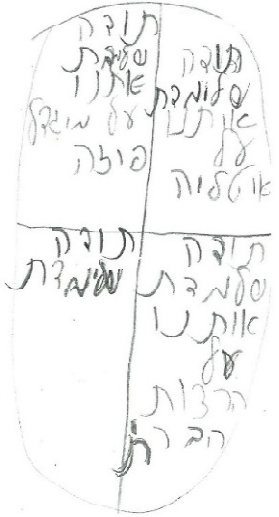 תודה
שלימדת
אותנו
על
איטליה
תודה
שלימדת
אתנו
על מיגדל
פיזה
תודה
שלמדת
אותנו
על
ארצות
תודה
שלימדת